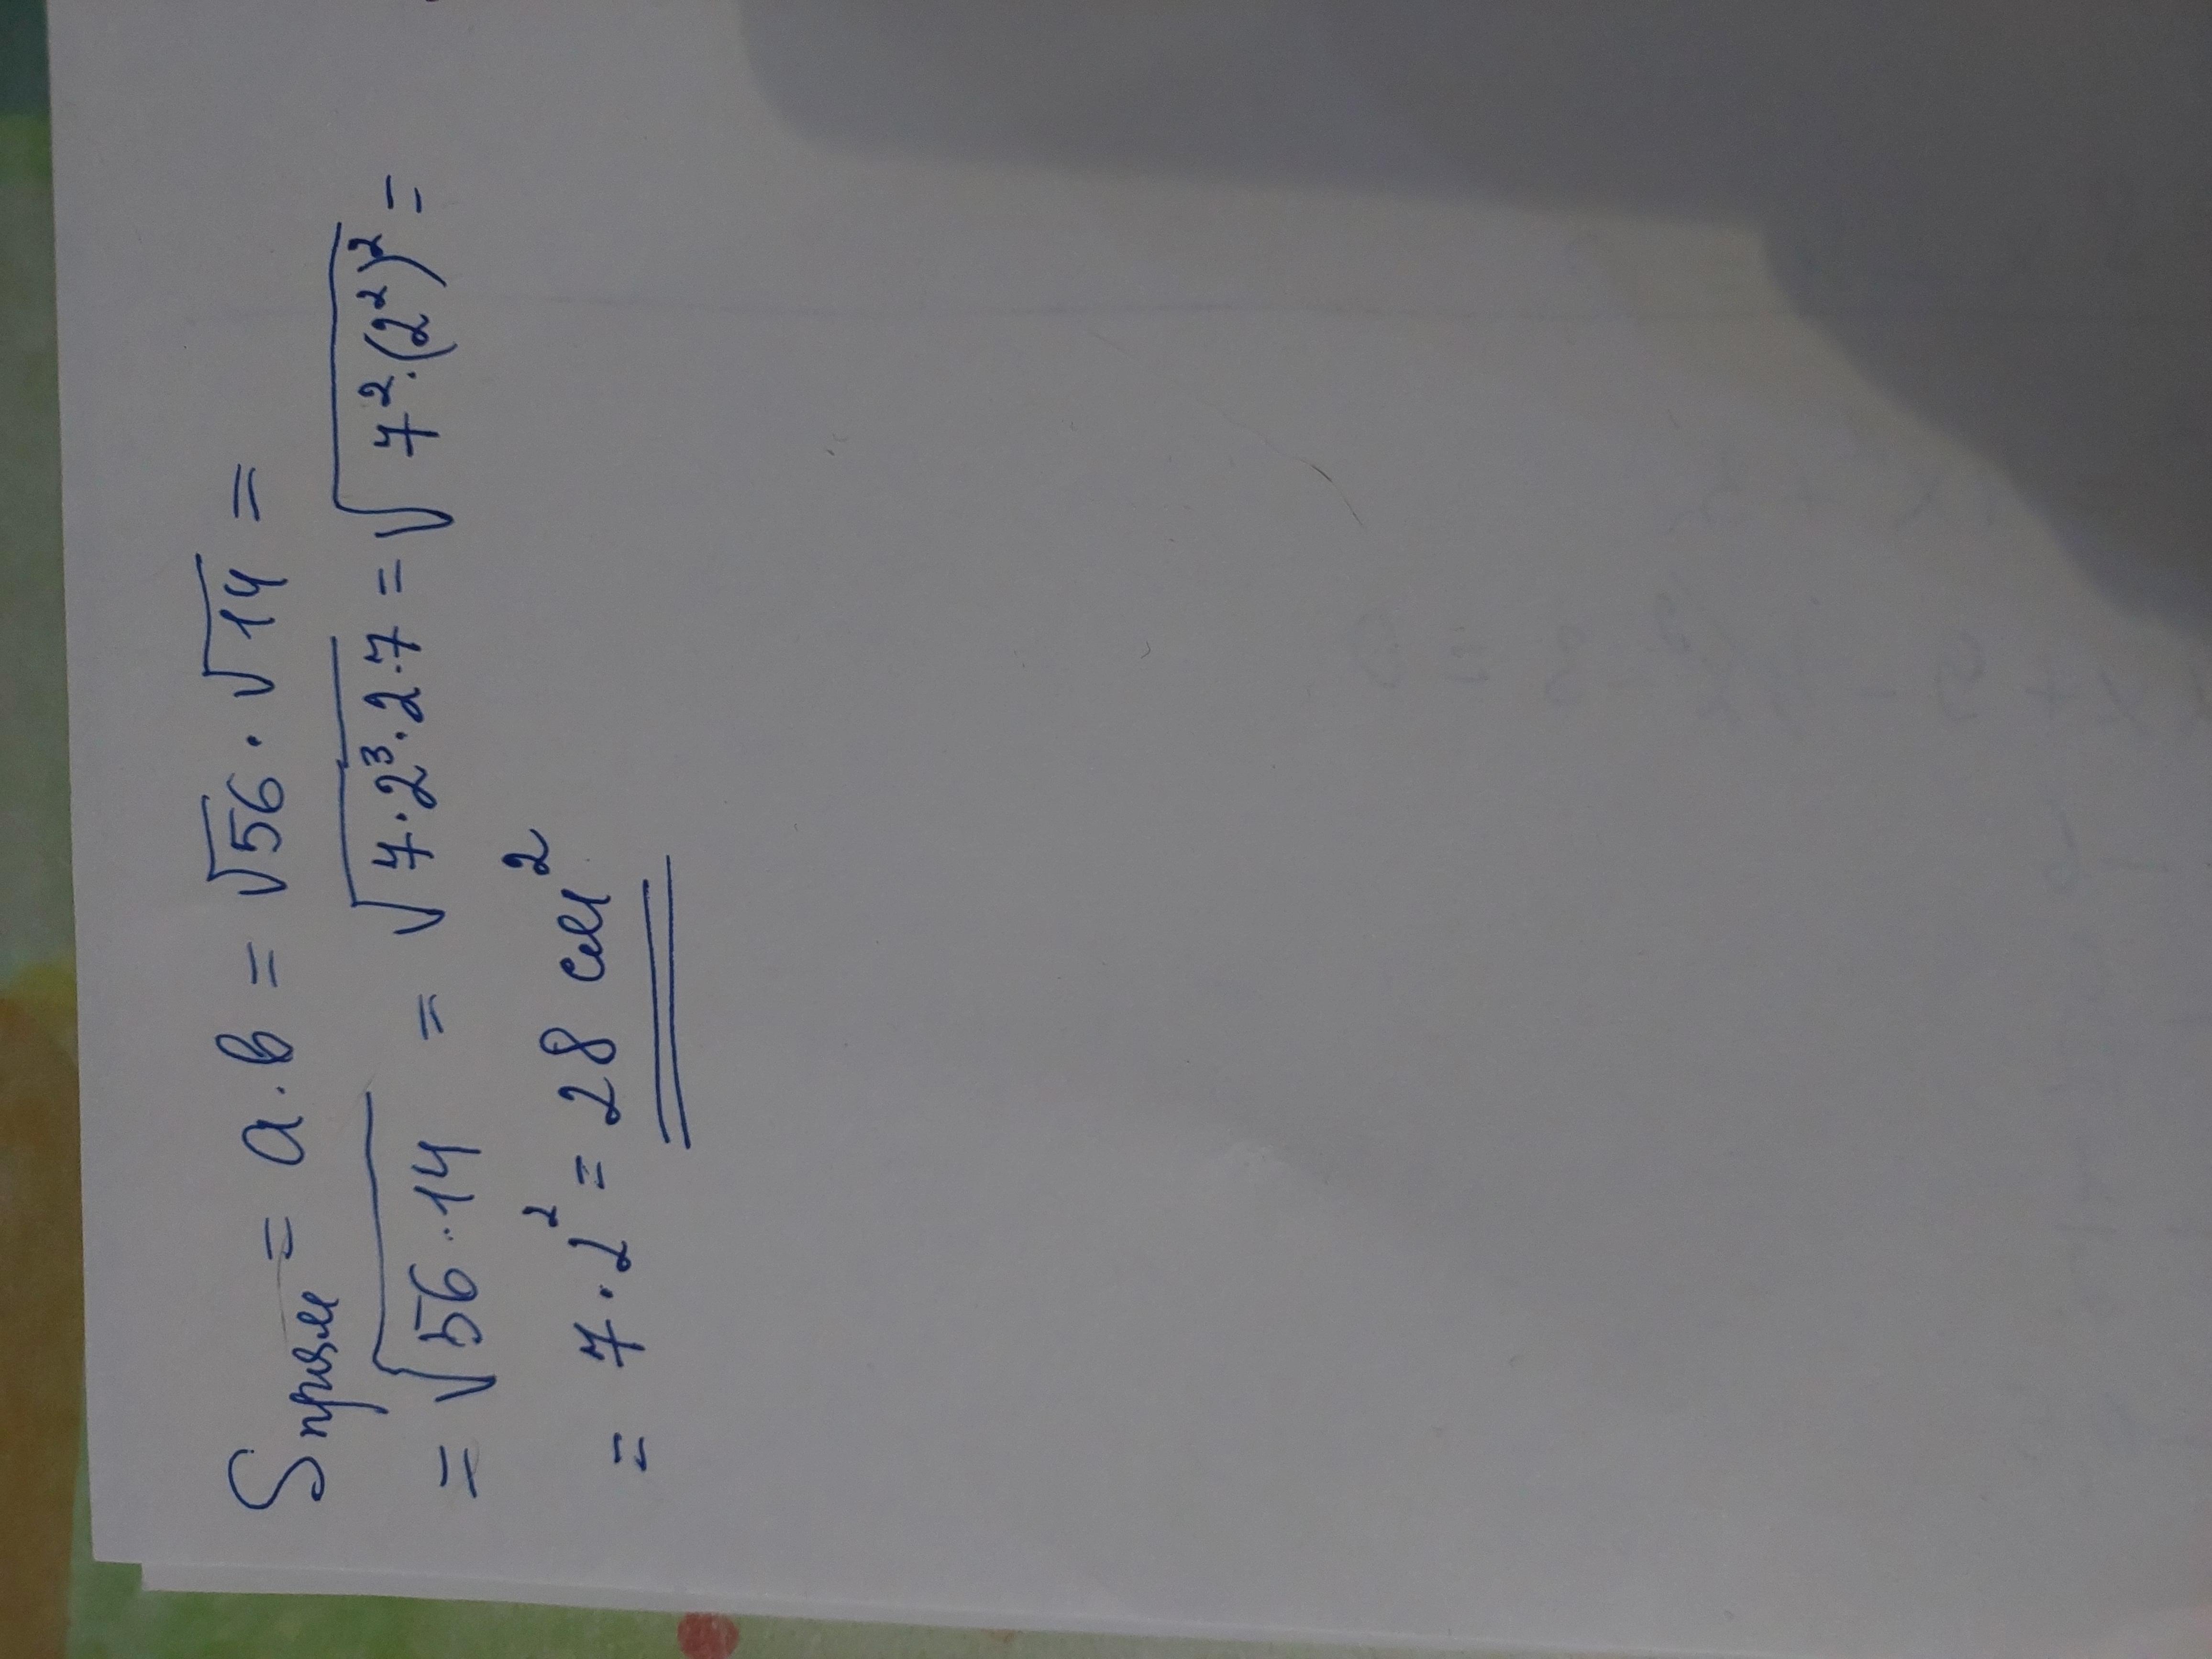 Sпрям = a · b = √56 · √14 =
= √56·14 = √7·2³·2·7 = √7²·(2²)² =
= 7·2² = 28 см²